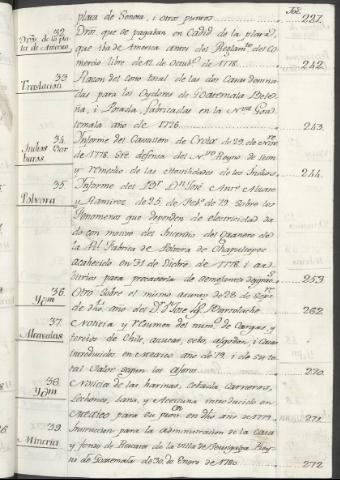 Fol.
plaza de Sonora, i otros puntos 237.
32. Dros. que se pagaban en Cadiz de la plata
Dros. de la pla
ta de America que iba de America antes del Reglamto. del Co
mercio libre de 12 de Octubre de 1778. 242.
33. Razon del costo total de las dos Casas
Traslacion
das para los Oydores de Guatemala
ña, i Posada, fabricadas en la Nueva Goa
temala año de 1776. 243.
34. Informe del Cavallero de Croix de 23 de
Indios Bar
baros. de 1778. Sre. defensa del Nvo. Reyno de
y remedio de las ostilidades de los Indios 244.
35. Informe del Br. Dn. José Anto. Alzate
Polvora y Ramirez de 25 de Feb. de 79. Sobre los
Fenomenos que dependen de electricidad da
do con motivo del Incendio del Granero de
la Rl. Fabrica de Polvora de Chapultepec
acahecido en 31 de Dicibre. de 1778. i
bitrios para precaverla de semejantes 253
36. Otro sobre el mismo asunto de 28 de
Ydm de dho. año del Dr. Dn. José Ig. Bartolache 262
37. Noticia y resumen del numo. de Cargas, y
Alcavalas tercios de Chile, azucar, ocho, algodon, i Cacao
introducidos en Mexico año de 79. i de su to
tal valor segun los Aforos. 270.
38. Noticia de las harinas, Cebada, Carneros,
Ydm Lechones, Lana, y introducido en
Mexico para su en dho. año de 1779. 271.
39. Instruccion para la Administracion de la Casa
Mineria y fondo de Rescates de la Villa de Tegusigalpa Rey
no de Guatemala de 30. de Enero de 1780. 272